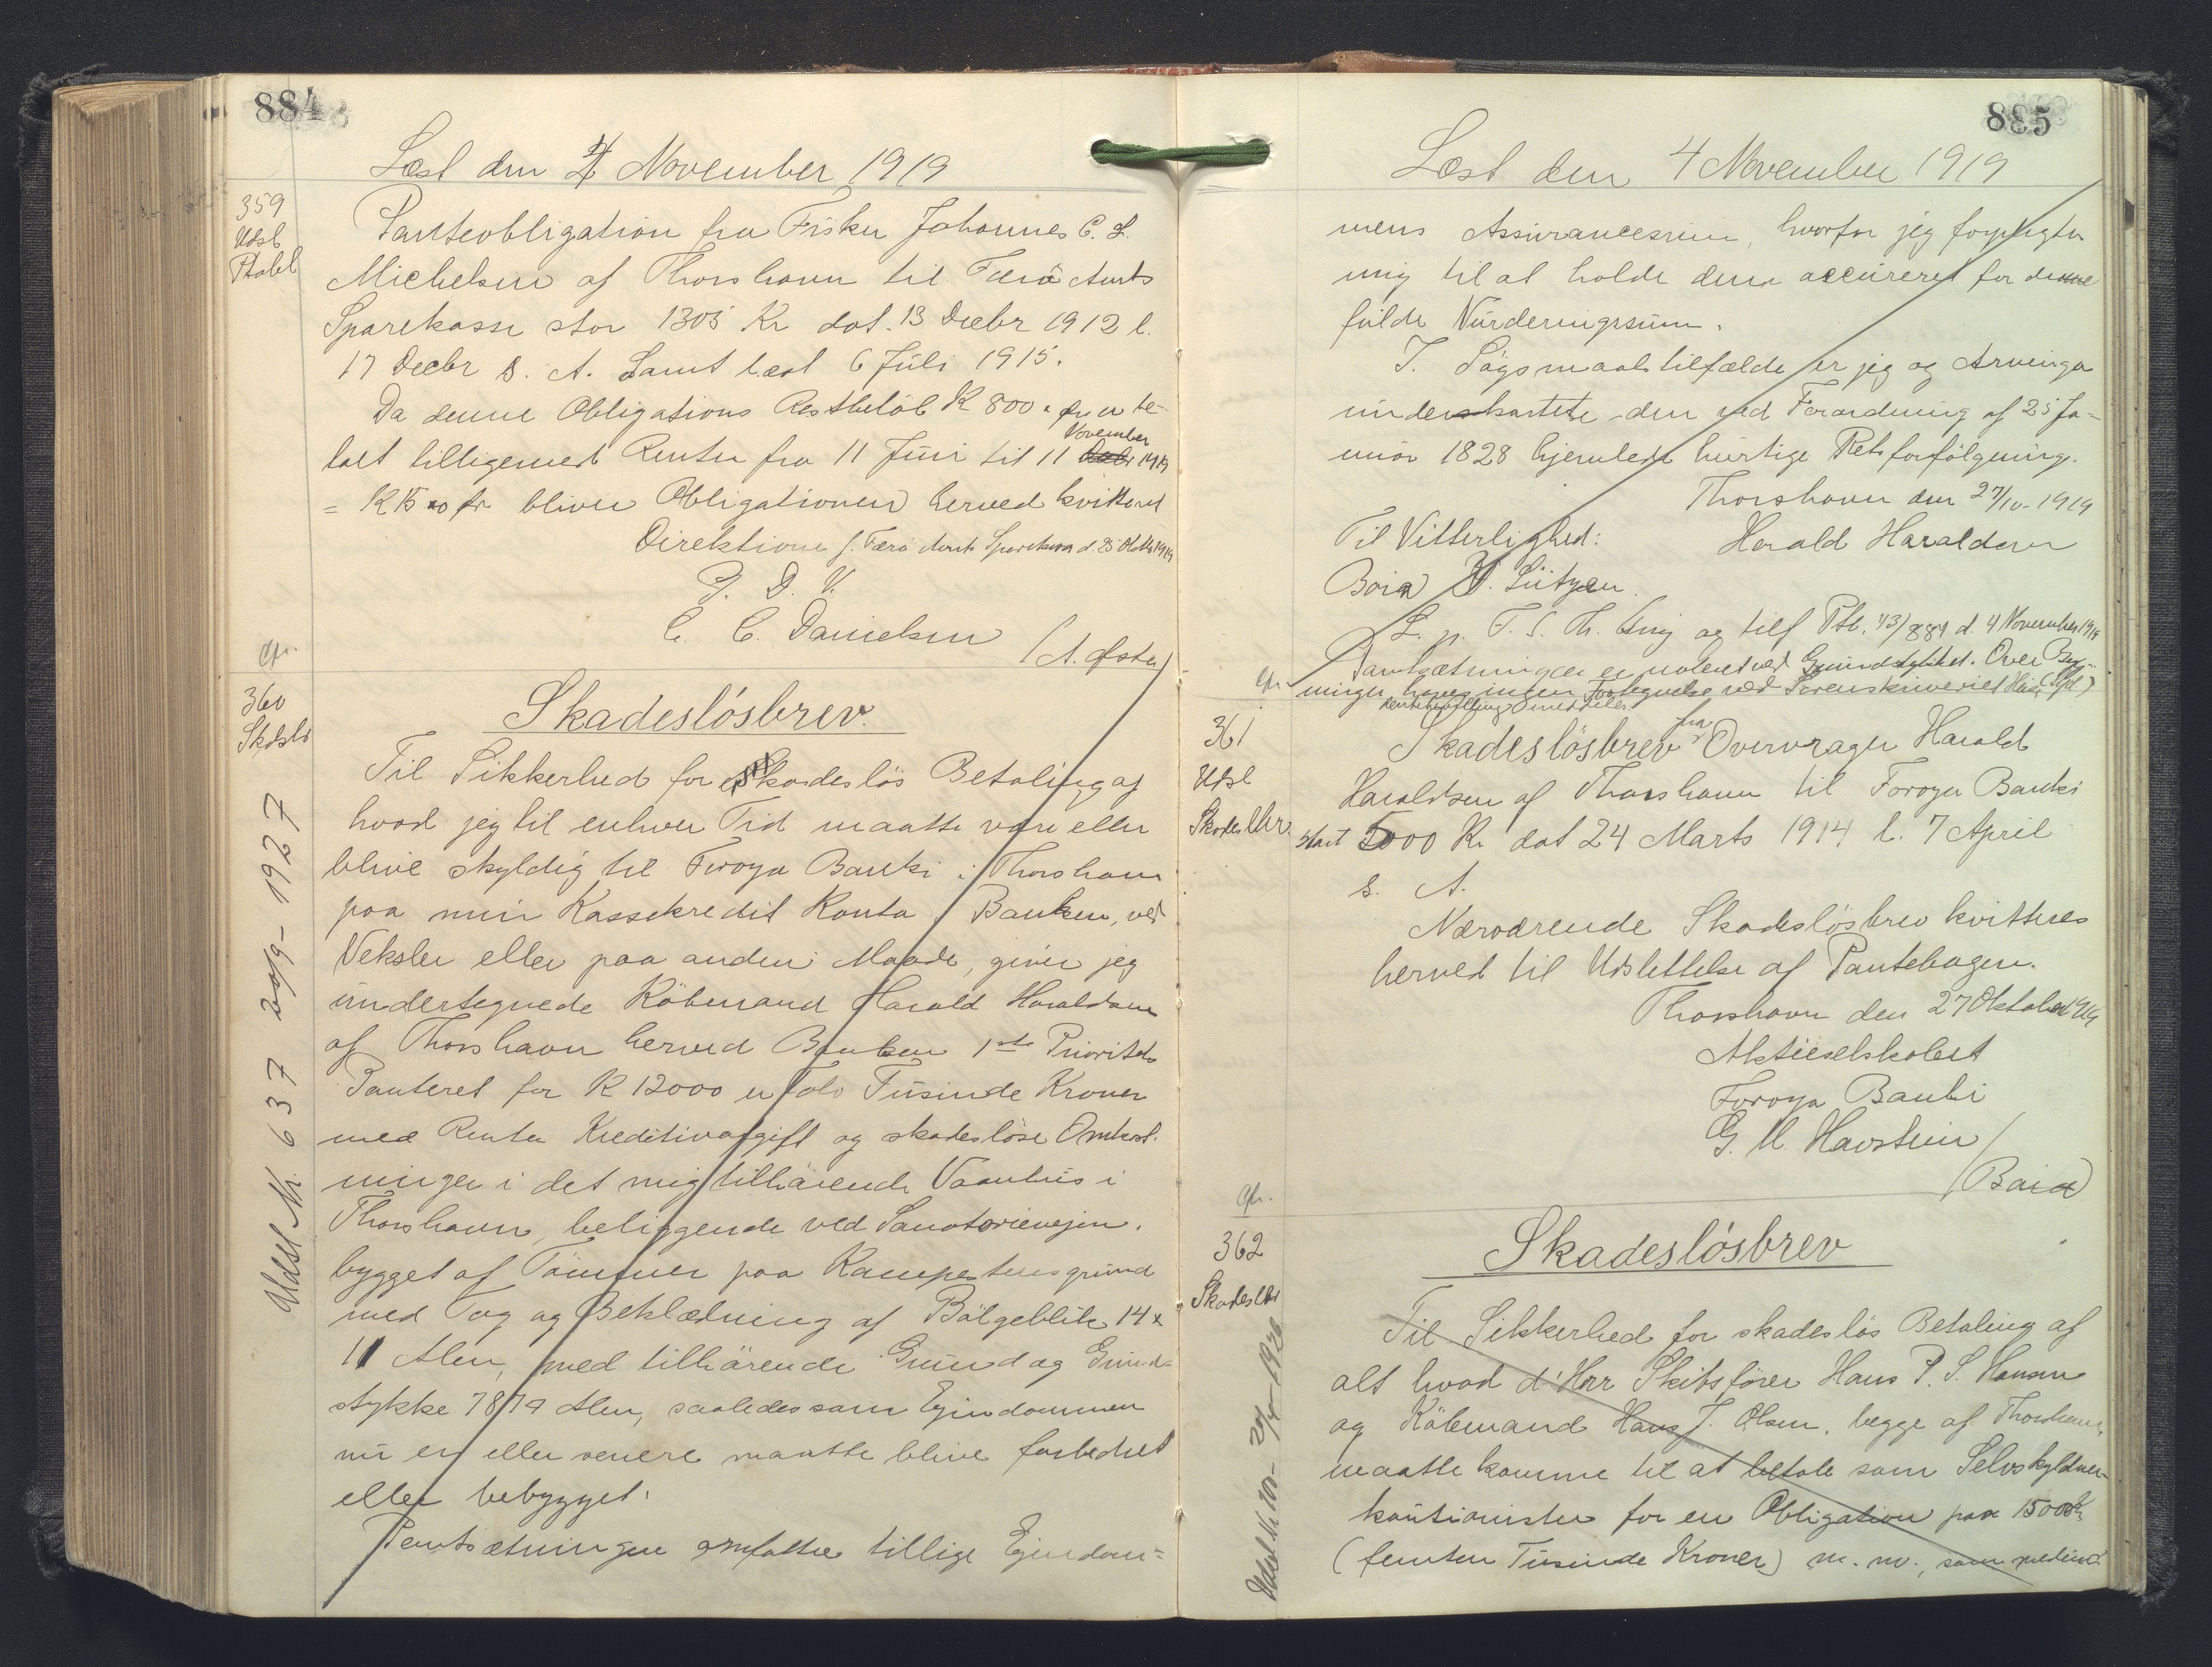 884
Læst den 4 November 1919
359
Udsl
Ptobl
Panteobligation fra Fisker Johannes C. L.
Michelsen af Thorshavn til Færø Amts
Sparekasse stor 1305 Kr dat. 13 Decbr 1912 l.
17 Decbr s. A. Samt læst 6 Juli 1915.
Da denne Obligations Restbeløb K 800 er be-
talt tilligemed Renter fra 11 Juni til 11 November 1919
= K 15 bliver Obligationen herved kvitteret
Direktionen f. Færø Amts Sparekasse d. 25 Oktb 1919
P. D. V.
C. C. Danielsen
/A. Øster/
Cfr.
360
Skdslø
Skadesløsbrev.
Til Sikkerhed for skadesløs Betaling af
hvad jeg til enhver Tid maatte være eller
blive skyldig til Føroya Banki i Thorshavn
paa min Kassekredit Konto i Banken, ved
Veksler eller paa anden Maade, giver jeg
undertegnede Købmand Harald Haraldsen
af Thorshavn herved Banken 1ste Prioritets
Panteret for K 12000 er Tolv Tusinde Kroner
med Renter Kreditivafgift og skadesløse Omkost-
ninger i det mig tilhørende Vaanhus i
Thorshavn, beliggende ved Sanatorievejen.
bygget af Tømmer paa Kampestensgrund
med Tag og Beklædning af Bølgeblik 14 x
11 Alen, med tilhørende Grund og Grund-
stykke 7879 Alen, saaledes som Ejendommen
nu er eller senere maatte blive forbedret
eller bebygget.
Pantsætningen omfatter tillige Ejendom=
Udsl Nr. 637 20/9-1927
885
Læst den 4 November 1919
mens Assurancesum, hvorfor jeg forpligter
mig til at holde den assureret for denne
fulde Vurderingssum.
I. Søgsmaalstilfælde er jeg og Arvinger
underkastet den ved Forordning af 25 Ja-
nuar 1828 hjemlede hurtige Retsforfølgning.
Thorshavn den 27/10-1919
Til Vitterlighed: Harald Haraldsen
Baia H. Lützen.
L. p. T. S. Th. ting og tilf Ptb. 43/884 d. 4 November 1919
Pantsætningen er noteret ved Grundstykket. Over Byg-
ninger haves ingen Fortegnelse ved Sorenskriveriet
Cfr.
361
Udsl
Skadeslbr.
Skadesløsbrev fra Overvrager Harald
Haraldsen af Thorshavn til Føroya Banki
stort 5000 Kr dat 24 Marts 1914 l. 7 April
s. A.
Nærværende Skadesløsbrev kvitteres
herved til Udslettelse af Pantebogen.
Thorshavn den 27 Oktober 1919
Aktieselskabet
Føroya Banki
G. M. Havsteen
/Baia/
Cfr.
362
Skadeslbr
Skadesløsbrev
Til Sikkerhed for skadesløs Betaling af
alt hvad d'Hrr Skibsfører Hans P. S. Hansen
og Købmand Hans J. Olsen, begge af Thorshavn,
maatte komme til at betale som Selvskyldner-
kautionister for en Obligation paa 15000 Kr
(femten Tusinde Kroner) m. m., som